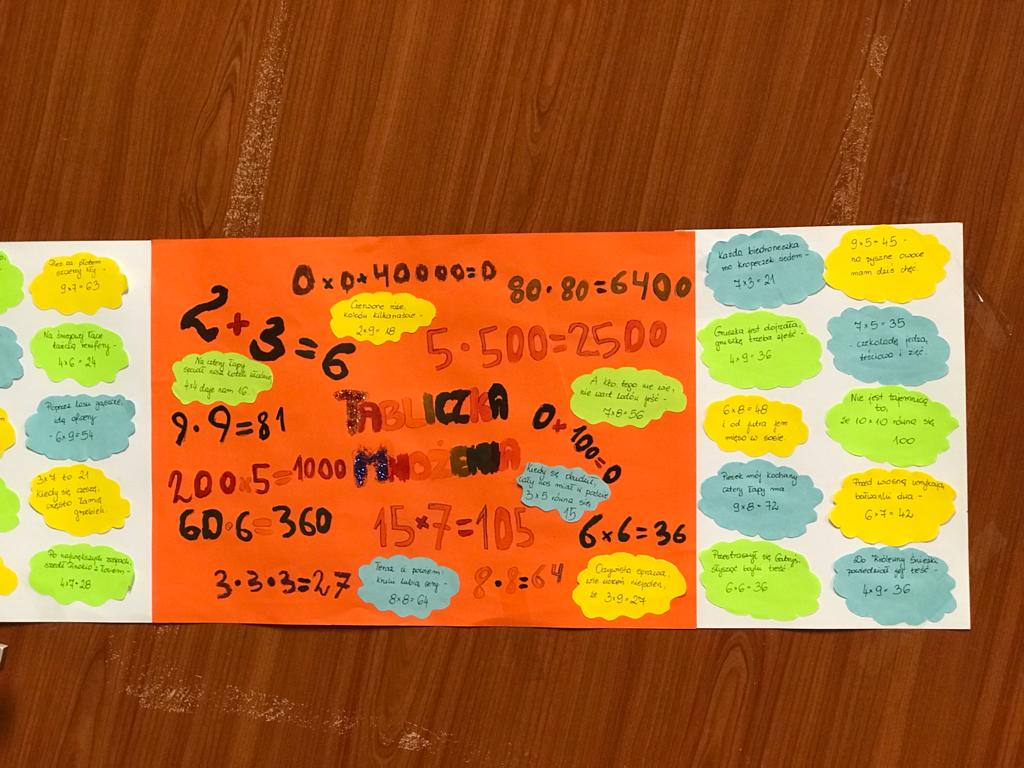 Pies za płotem
szczerzy kły -
9×7=63
Na śnieżnej łące
tańczą renifery -
4×6=24
Poprzez lasu gąszcze,
idą oficerzy
- 6×9=54
3×7 to 21
Kiedy się czeszę,
często łamię
grzebień.
Po największych zaspach,
szedł
4×7=28
0×0+40000=0
80·80=6400
2+3=6
Czerwone róże,
kolców kilkanaście -
2×9=18
5·500=2500
Na cztery łapy
spadł nasz kotek
4×4 daje nam 16.
A kto tego nie wie,
nie wart lodów jeść -
7×8=56
TABLICZKA
MNOŻENIA
9·9=81
0×100=0
200×5=1000
Kiedy się
cały nos miał w pudrze
3×5 równa się
15
60·6=360
15×7=105
6×6=36
3·3·3=27
Teraz u powiem -
króliki lubią sery -
8×8=64
8·8=64
Oczywista sprawa,
wie uczeń niejeden,
że 3×9=27
Każda biedroneczka
ma kropeczek siedem -
7×3=21
9×5=45 -
na pyszne owoce
mam dziś chęć.
Gruszka jest dojrzała,
gruszkę trzeba zjeść -
4×9=36
7×5=35
- czekoladę jedzą,
teściowa i zięć.
6×8=48
i od jutra jem
mięso w sosie.
Nie jest tajemnicą
to,
że 10×10 równa się
100
Piesek mój kochany
cztery łapy ma
9×8=72
Przed wiosną umykają,
bałwanki dwa -
6×7=42
Przestraszył się Gabryś,
słysząc bajki treść -
6·6=36
Do Królewny Śnieżki
powiedział jej treść -
4×9=36